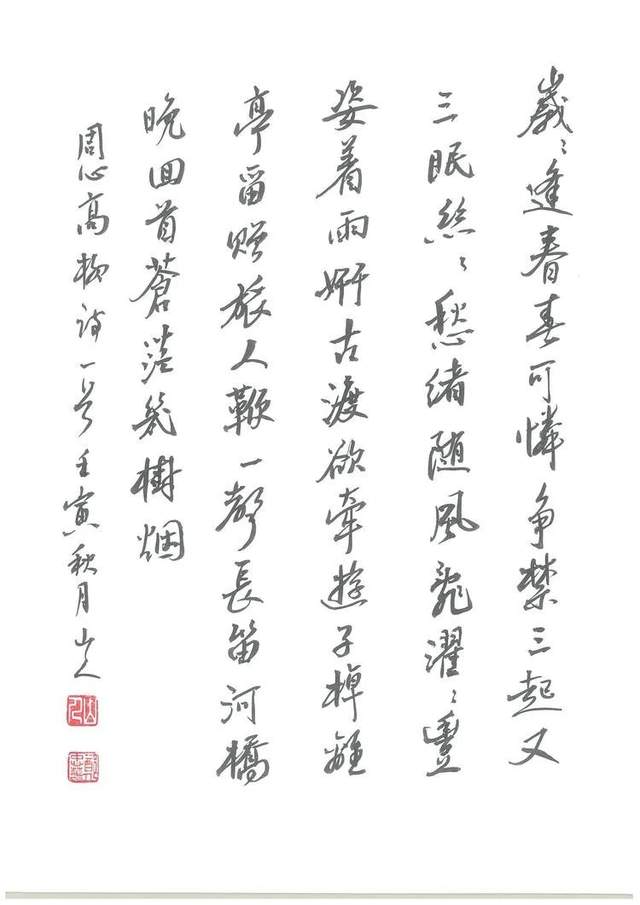 歲々逢春春可憐争禁三起又
三眠絲々愁緒随風亂濯々豐
姿着雨妍古渡欲牽遊子棹離
亭留贈旅人鞭一聲長笛河橋
晚回首蒼茫幾樹烟
周心高柳詩一首壬寅秋月山人